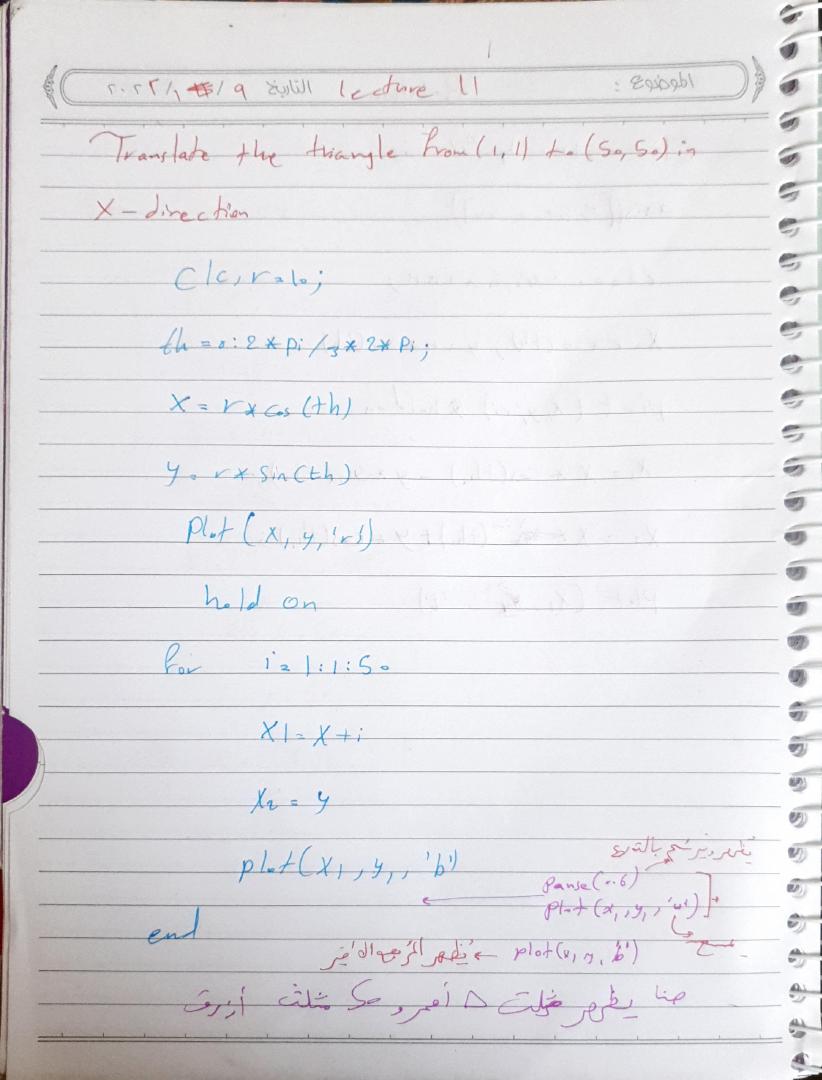 الموضوع : lecture 11 التاريخ ٩/١/٢٠٢٢
Translate the triangle from (1,1) to (50,50) in
X-direction
clc, r=10;
th =0:2*pi/3*2*pi;
X = r*cos(th)
y = r*sin(th)
plot (x, y,'r')
hold on
for i=1:1:50
X1=X+i
X2 = y
plot(X1, y1, 'b')
بالتدريج
pause(0.6)
plot(x1, y1, 'w')
end
يمسح
plot(x, y, 'b') ← يظهر المربع الاخير
هنا يظهر مثلث △ أحمر و 50 مثلث أزرق